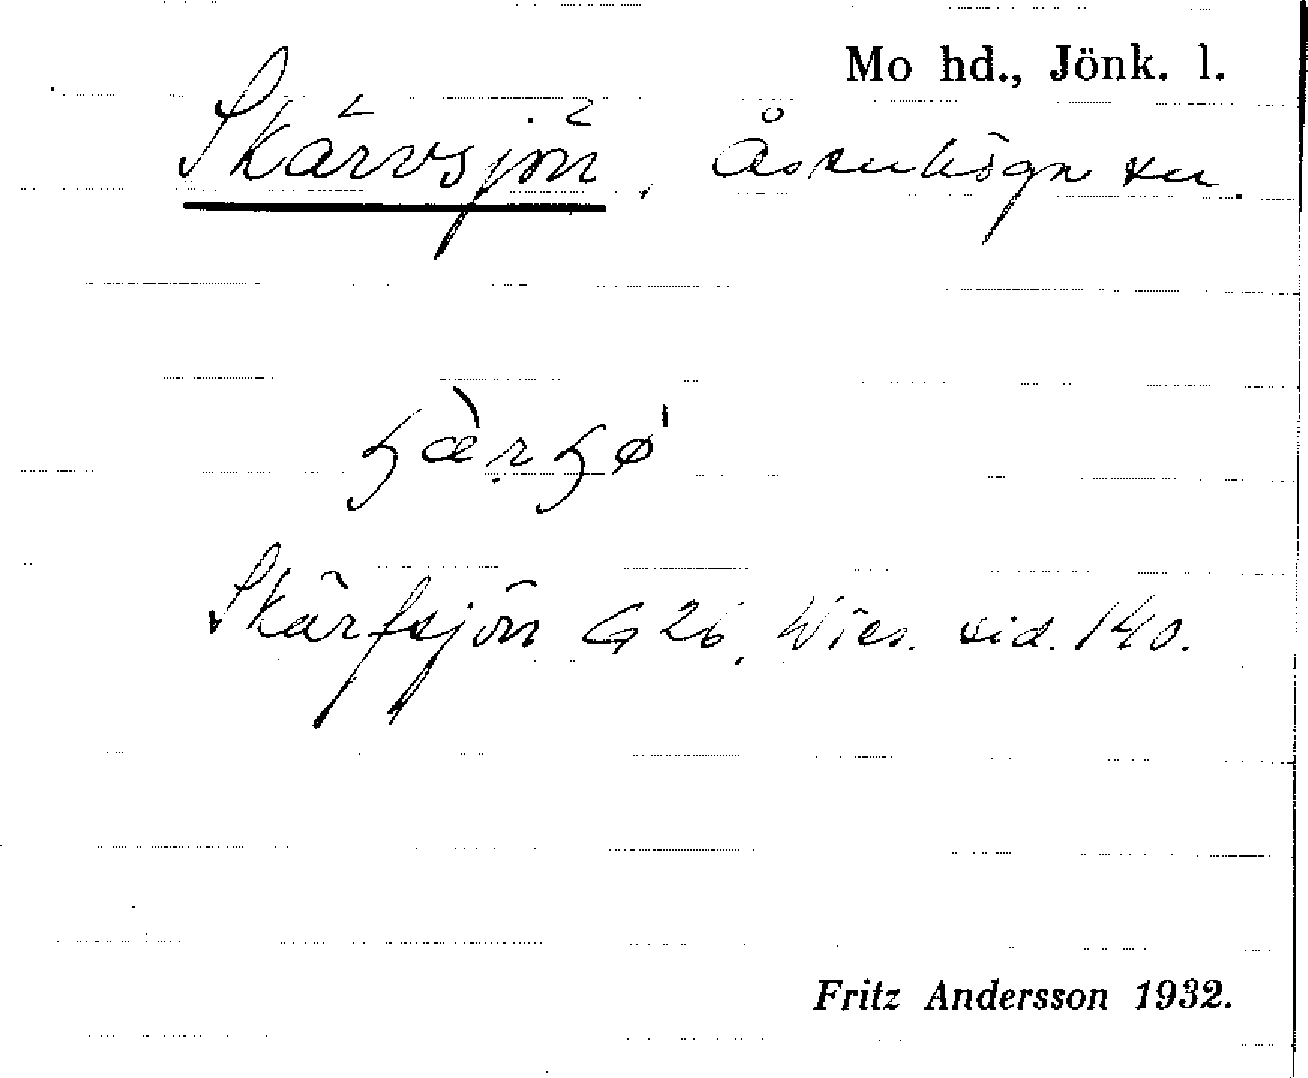 Mo hd., Jönk. l.
Skärvsjön, Åsenhöga sn.
Skärfsjön G 26, Wies. sid. 140.
Fritz Andersson 1932.